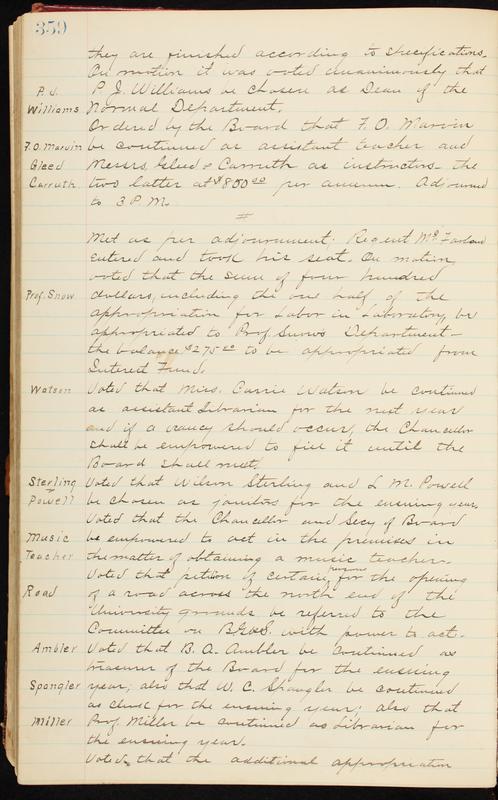 359
they are finished according to specifications.
On motion it was voted unanimously that
P. J. Williams P. J. Williams be chosen as Dean of the
Normal Department.
Ordered by the Board that F. O. Marvin
F. O. Marvin be continued as assistant teacher and
Gleed Messrs. Gleed & Carruth as instructors the
Carruth two latter at $800 00 per annum. Adjourned
to 3 P. M.
Met as per adjournment. Regent McFarland
entered and took his seat. On motion
voted that the sum of four hundred
Prof. Snow dollars, including the one half of the
appropriation for Labor in Laboratory, be
appropriated to Prof Snows Department—
the balance $275 00 to be appropriated from
Interest Fund.
Watson Voted that Miss. Carrie Watson be continued
as assistant Librarian for the next year
and if a vancy should occur, the Chancellor
shall be empowered to fill it until the
Board shall meet.
Sterling Voted that Wilson Sterling and L. M. Powell
Powell be chosen as janitors for the ensuing year.
Voted that the Chancellor and Secy of Board
Music be empowered to act in the premises in
Teacher the matter of obtaining a music teacher.
Voted that petition of certain persons for the opening
Road of a road across the north end of the
University grounds be referred to the
Committee on B. & G. with power to act.
Ambler Voted that B. O. Ambler be continued as
treasurer of the Board for the ensuing
Spangler year; also that W. C. Spangler be continued
as clerk for the ensuing year; also that
Miller Prof Miller be continued as Librarian for
the ensuing year.
Voted, that the additional appropriation